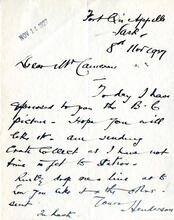 Fort Qu'Appelle
Sask.
NOV 11 1927
8th Nov 1927
Dear Mr Cameron
Today I have
expressed to you the B.C
picture - Hope you will
like it - am sending
Crate Collect as I have not
time to get to Station.
Kindly drop me a line as to
how you like it & the other
sent
Yours
Henderson
In haste